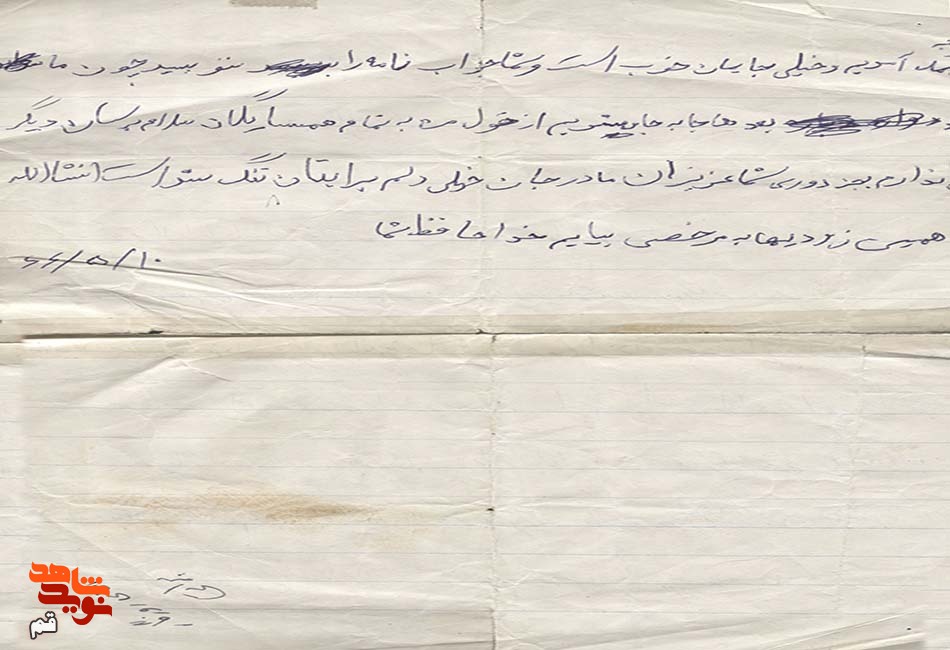 آمدیم و خیلی جایمان خوب است و شما جواب نامه را ننویسید چون ما
بعدها جا به جا میشویم از قول من به تمام همسایگان سلام برسان دیگر
ندارم بجز دوری شما عزیزان مادر جان خیلی دلم برایتان تنگ شده است انشاالله
همین زودیها به مرخصی بیایم خداحافظ شما
۶۶/۵/۱۰
شاهد
نوید
قم